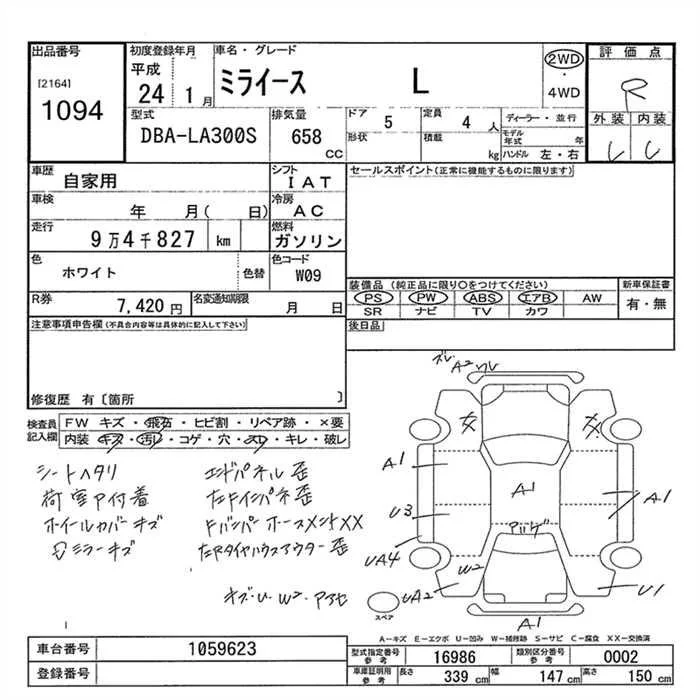 出品番号
[2164]
1094
初度登録年月
平成
24 1 月
車名・グレード
ミライース L
2WD
・
4WD
評価点
R
外装 内装
型式
DBA-LA300S
排気量
658
CC
ドア
5
形状
定員
4 人
積載
kg
ディーラー・並行
モデル年式 年
ハンドル 左・右
車歴
自家用
シフト
IAT
車検
年 月( 日)
冷房
AC
走行
9万4千827 km
燃料
ガソリン
色
ホワイト
色替
色コード
W09
R券
7,420 円
名変通知期限
月 日
セールスポイント(正常に機能するものに限ります)
装備品(純正品に限り○をつけてください)
PS PW ABS エアB AW
SR ナビ TV カワ
新車保証書
有・無
後日品
注意事項申告欄(不具合内容等は具体的に記入して下さい)
修復歴 有〔箇所 〕
検査員
記入欄
FW キズ・飛石・ヒビ割・リペア跡・×要
内装 キズ・汚レ・コゲ・穴・スレ・キレ・破レ
シートヘタリ
荷室P付着
ホイールカバーキズ
ミラーキズ
エンドパネル歪
左Fインパネ歪
Fバンパーホースメント××
左Rタイヤハウスアウター歪
キズ・U・W2・
ズレ
A2
A1
U3
UA4
UA2
W2
A1
A1
U1
A1
スペア
A-キズ E-エクボ U-凹み W-補修跡 S-サビ C-腐食 XX-交換済
車台番号
1059623
登録番号
型式指定番号
参考
16986
類別区分番号
参考
0002
車庫証明用
参考
長さ 339 cm 幅 147 cm 高さ 150 cm